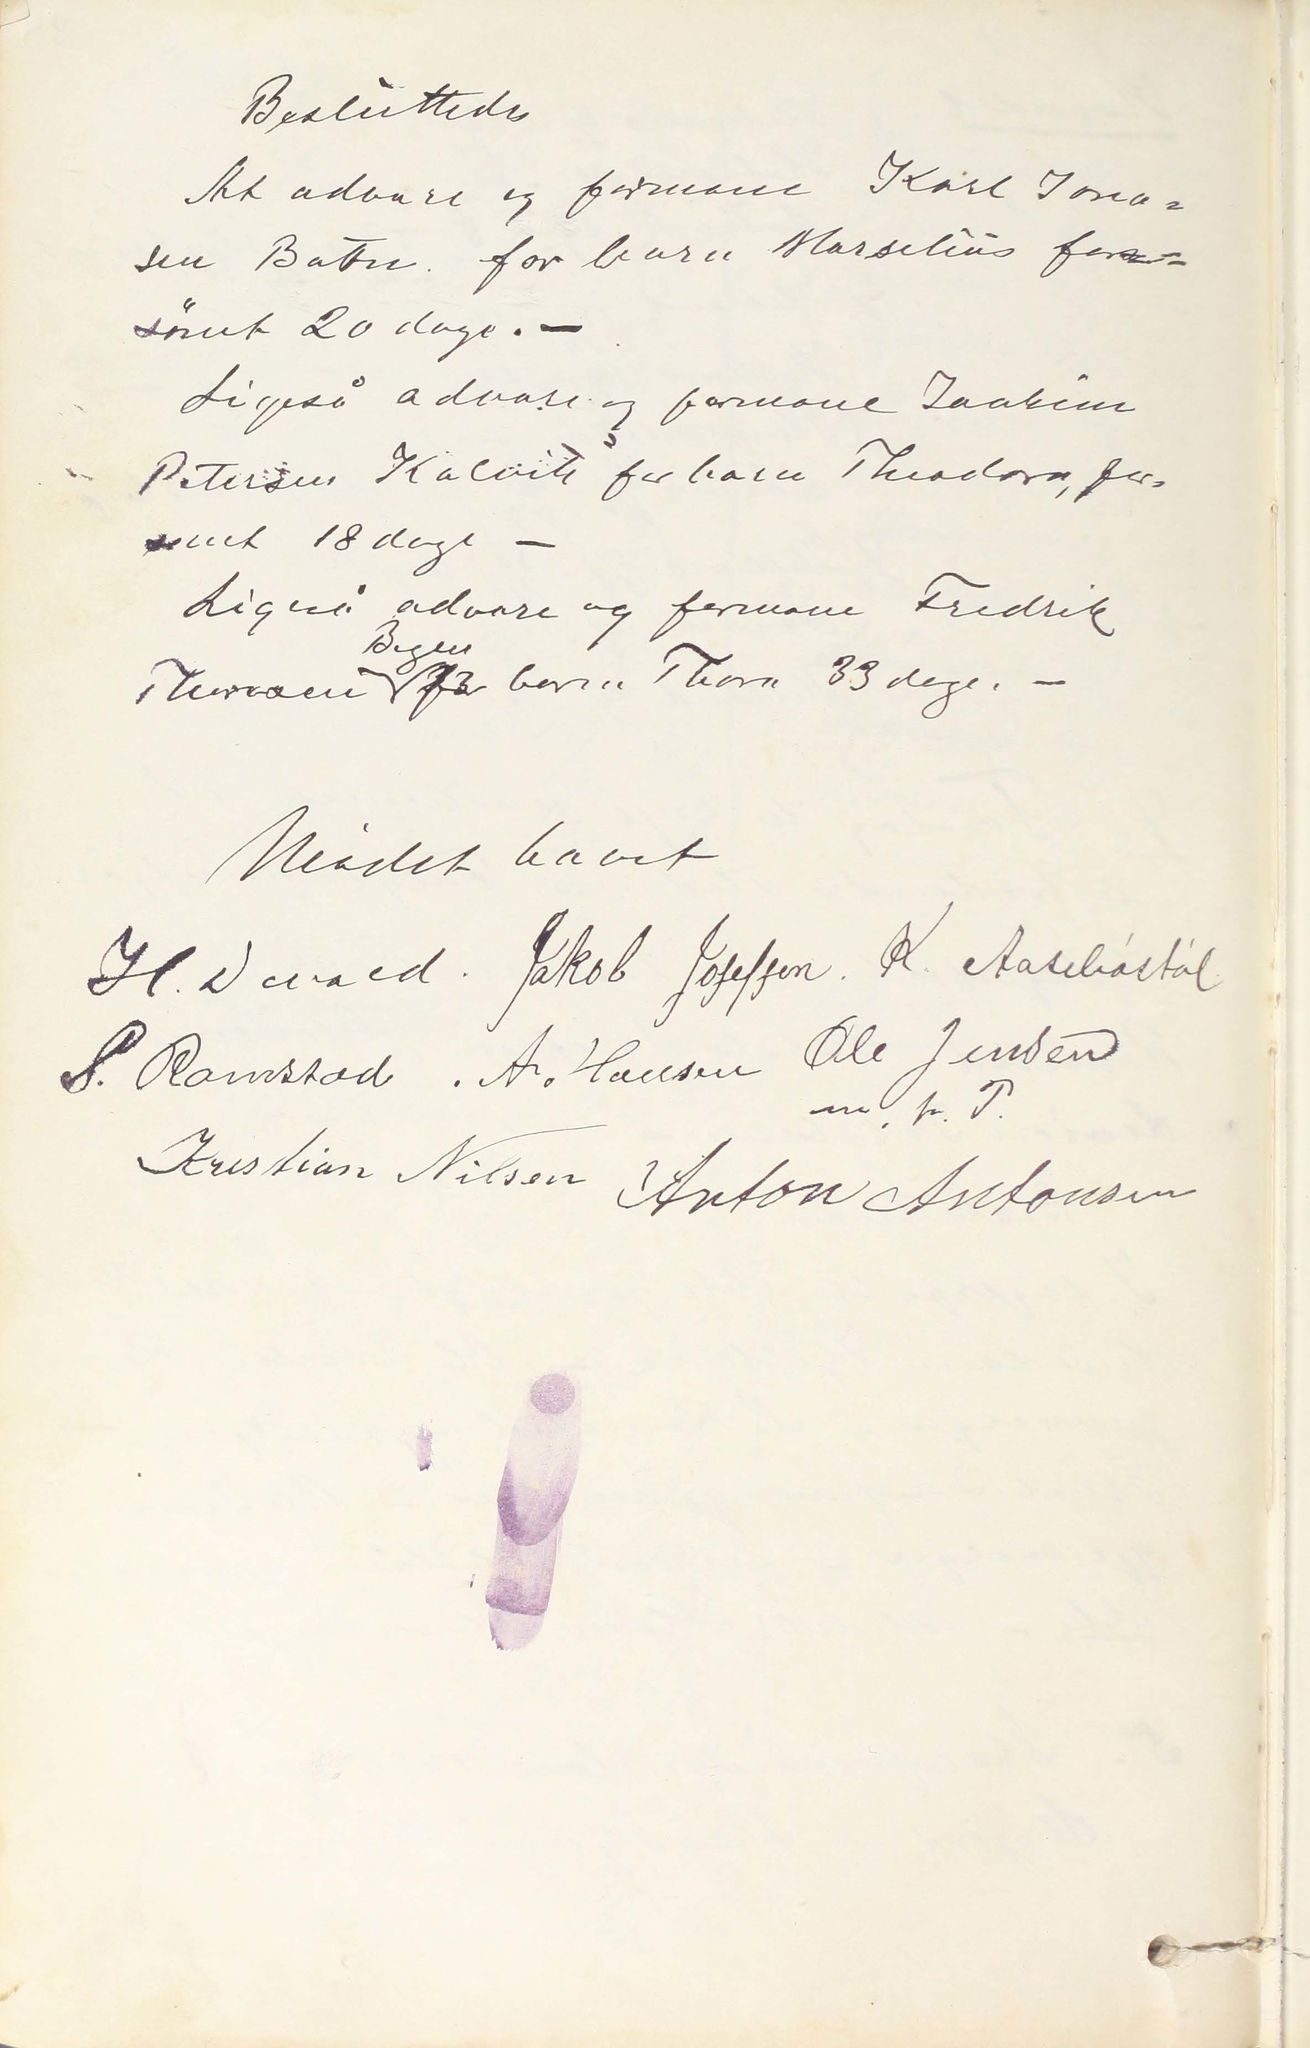 Besluttedes
At advare og formane Karl Jona=
sen Botn. for barn Marselius for=
sömt 20 dage. —
Ligeså advare og formane Joakim
Petersen Kalvik for barn Theodora, for=
sömt 18 dage —
Ligeså advare og formane Fredrik
Bogen
Thoresen for barn Thora 33 dage. —
Mödet hævet
H. Jakob Josefsen. K. Aaseböstöl
P. Ramstad. A. Hansen Ole Jensen
m. p. P.
Kristian Nilsen Anton Antonsen